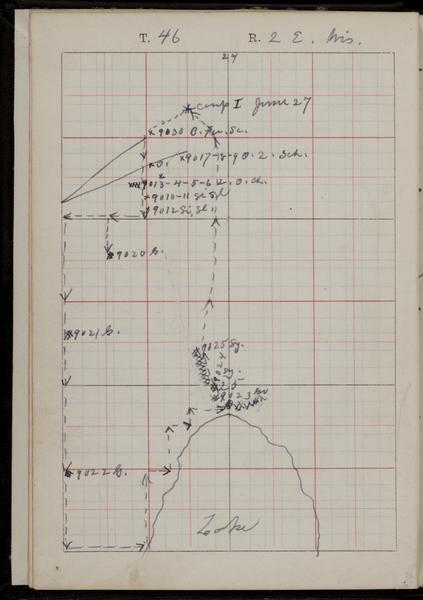 T. 46 R. 2 E. Wis.
24
Camp I June 27
9030 G.
9017-18-9 Q. Z. Sch.
Q.
9013-4-5-6
9010-11 Si Sl
9012 Si, Sl.
9020 G.
9025 Sy.
9021 G.
9024
Sy.
9023
9022 G.
Lake